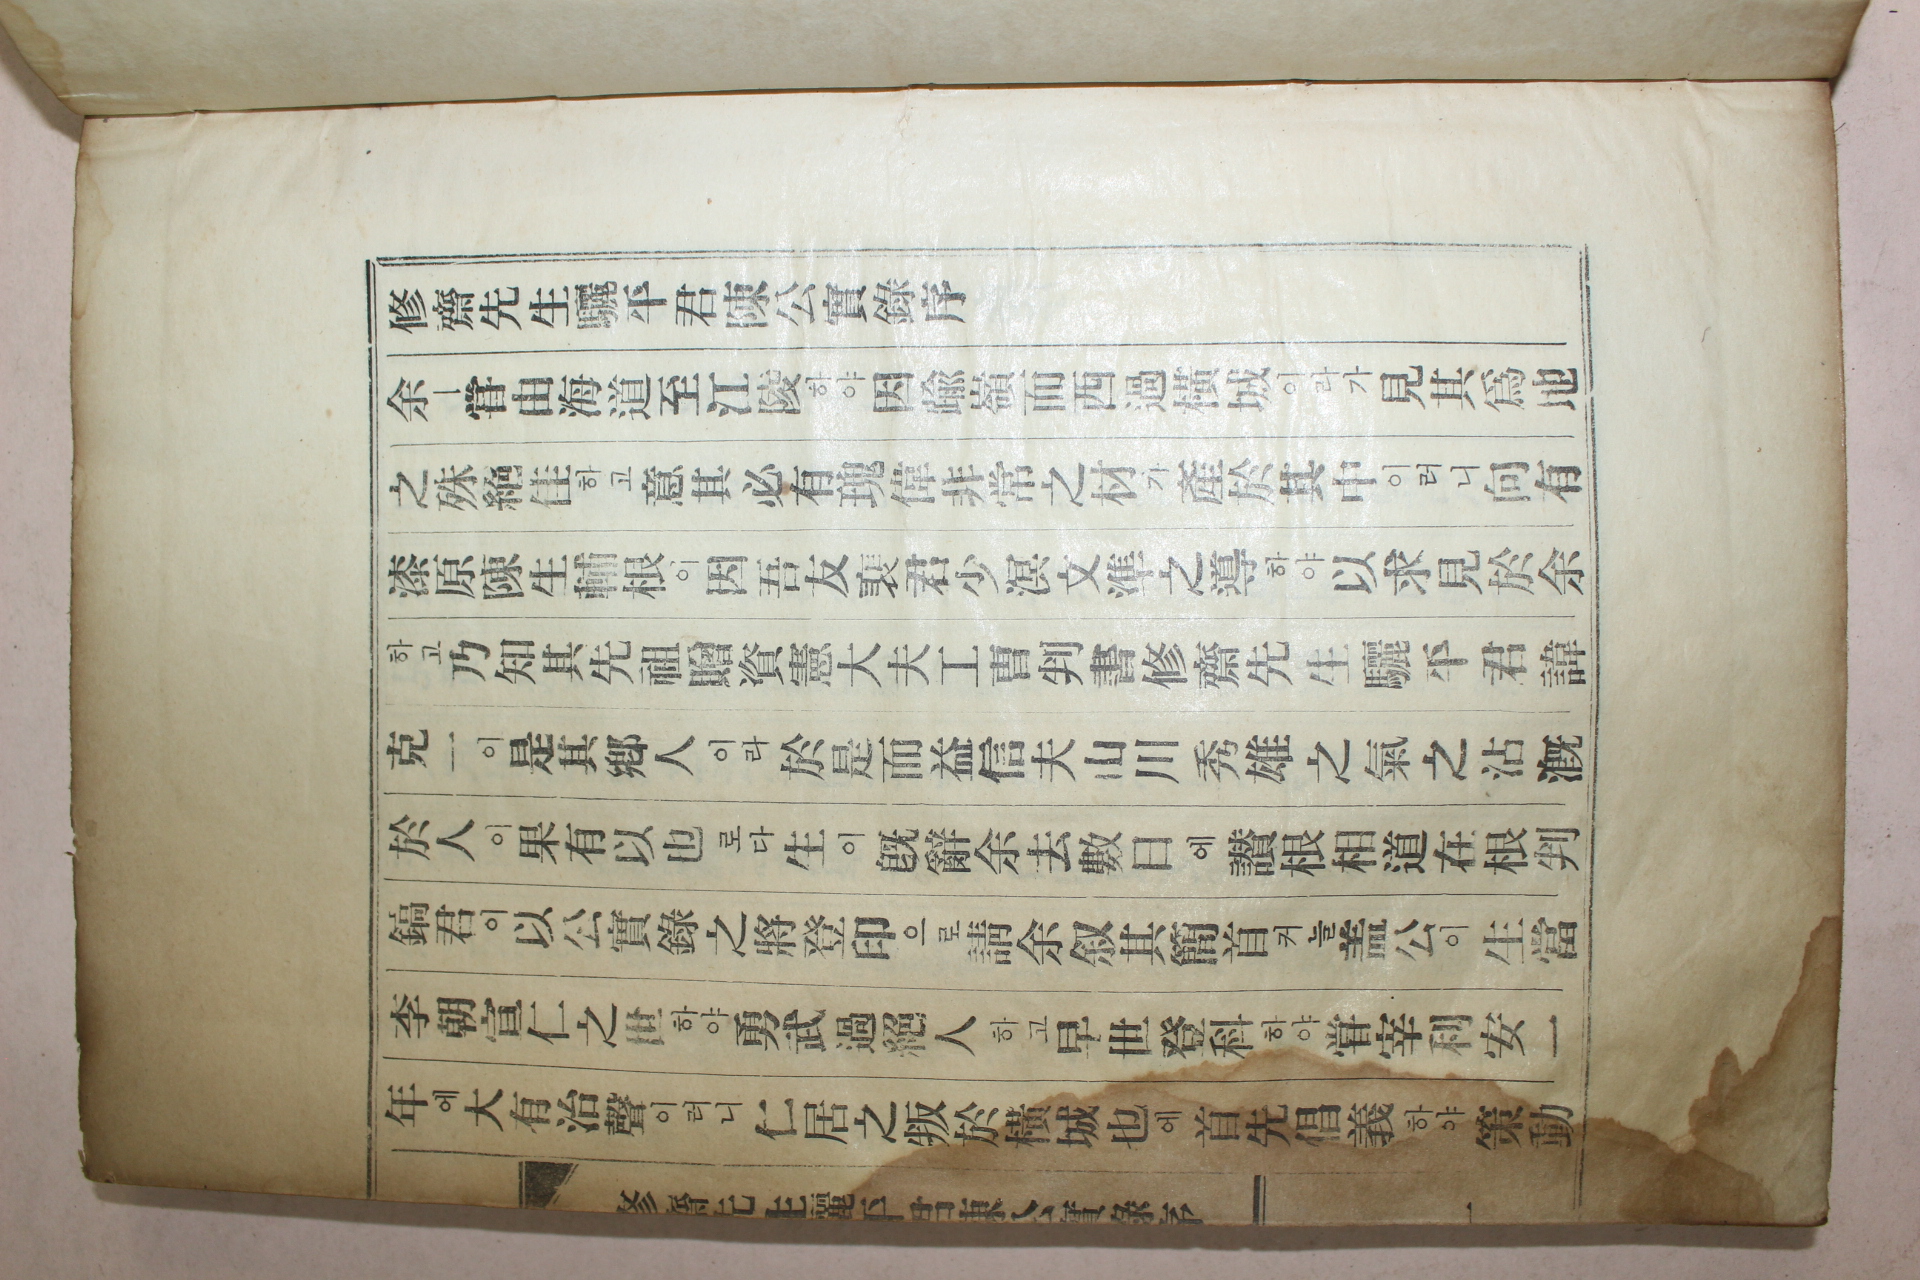 修齋先生驪平君陳公實錄序
余ㅣ嘗由海道至江陵하야因踰嶺而西過橫城이라가見其爲地
之殊絶佳하고意其必有瑰偉非常之材가產於其中이러니向有
漆原陳生輔根이因吾友裴君少溟文準之導하야以求見於余
하고乃知其先祖贈資憲大夫工曹判書修齋先生驪平君諱
克一이是其鄕人이라於是而益信夫山川秀雄之氣之沾漑
於人이果有以也로다生이旣辭余去數日에讚根相道在根判
鎬君이以公實錄之將登印으로請余叙其簡首커늘盖公이生當
李朝宣仁之世하야勇武過絕人하고早世登科하야嘗宰利安一
年에大有治聲이러니仁居之叛於橫城也에首先倡義하야策動
修齋先生驪平君陳公實錄序
一